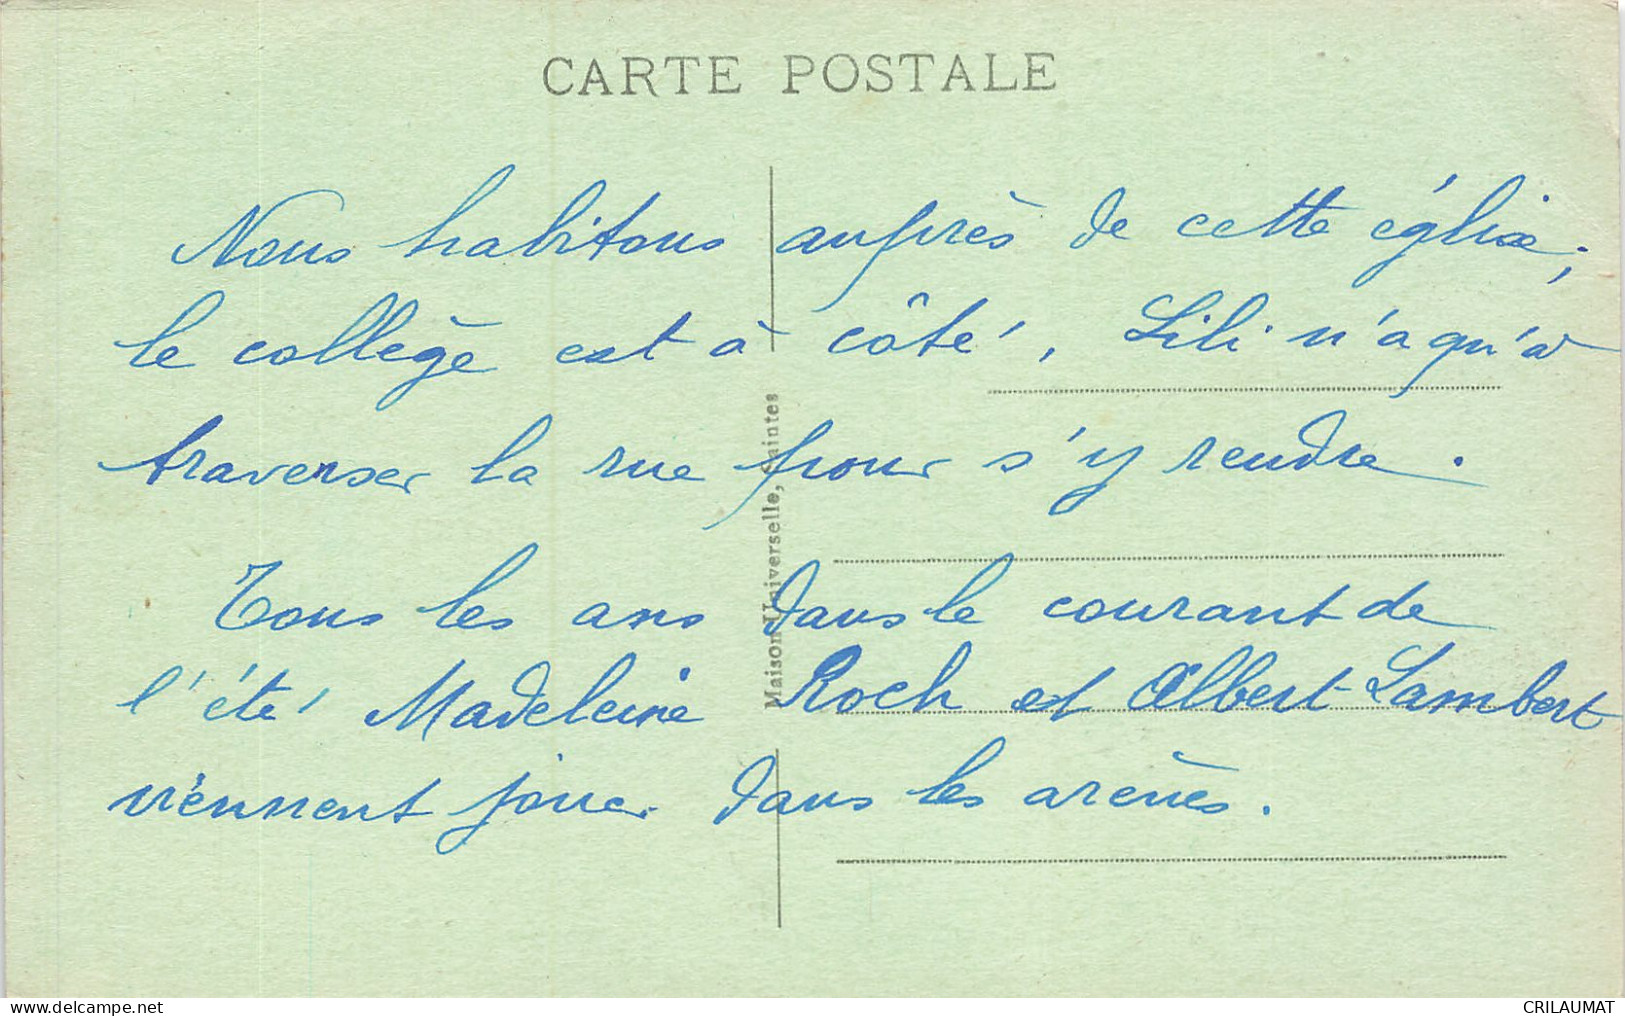 CARTE POSTALE
Nous habitons auprès de cette église,
le collège est à côté, Lili n'a qu'à
traverser la rue pour s'y rendre.
Tous les ans dans le courant de
l'été Madeleine Roch et Albert Lambert
viennent jouer dans les arènes.
Maison Universelle, Saintes
www.delcampe.net
CRILAUMAT